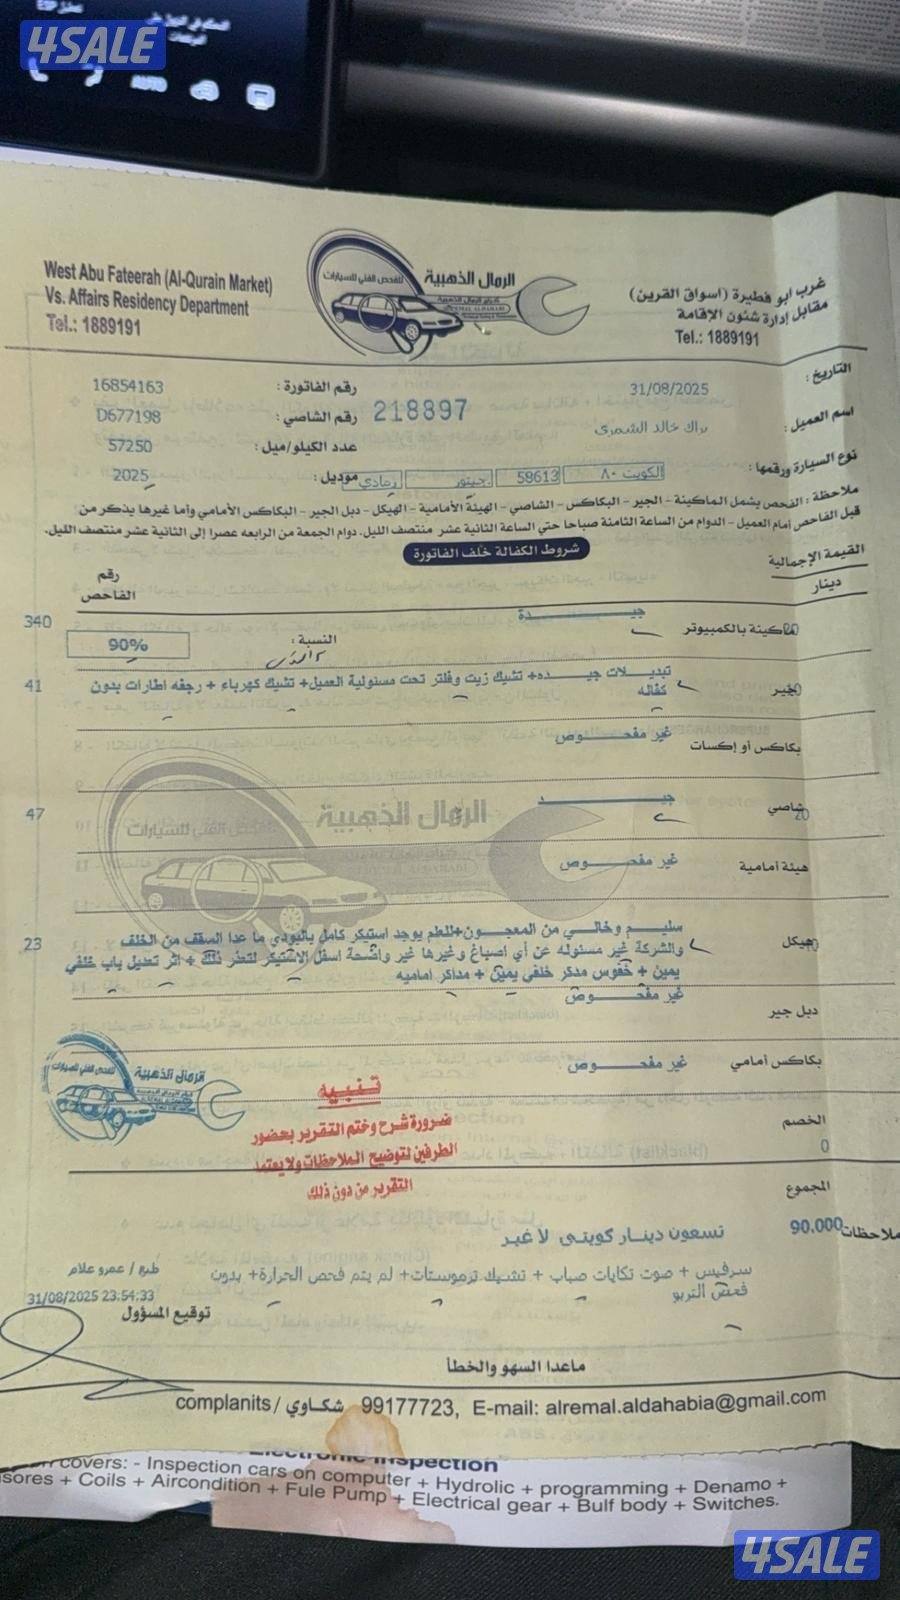 4SALE
AUTO
West Abu Fateerah (Al-Qurain Market)
Vs. Affairs Residency Department
Tel.: 1889191
الرمال الذهبية
للفحص الفني للسيارات
غرب ابو فطيرة (اسواق القرين)
مقابل إدارة شئون الإقامة
Tel.: 1889191
التاريخ : 31/08/2025
رقم الفاتورة : 16854163
اسم العميل : براك خالد الشمري
رقم الشاصي : D677198
218897
عدد الكيلو/ميل : 57250
نوع السيارة ورقمها : الكويت ٨٠ 58613 جيتور رمادي
موديل : 2025
ملاحظة : الفحص يشمل الماكينة - الجير - البكاكس - الشاصي - الهيئة الأمامية - الهيكل - دبل الجير - البكاكس الأمامي وأما غيرها يذكر من
قبل الفاحص أمام العميل - الدوام من الساعة الثامنة صباحا حتى الساعة الثانية عشر منتصف الليل. دوام الجمعة من الرابعه عصرا إلى الثانية عشر منتصف الليل.
شروط الكفالة خلف الفاتورة
القيمة الإجمالية
دينار
رقم
الفاحص
ماكينة بالكمبيوتر جيــدة 340
النسبة : 90%
جير تبديلات جيده+ تشيك زيت وفلتر تحت مسئولية العميل+ تشيك كهرباء + رجفه اطارات بدون 41
كفاله
بكاكس أو إكسات غير مفحـوص
شاصي 20 جيــد 47
هيئة أمامية غير مفحـوص
هيكل سليم وخالي من المعجون+للعلم يوجد استيكر كامل بالبودي ما عدا السقف من الخلف 23
والشركة غير مسئوله عن أي اصباغ وغيرها غير واضحة اسفل الاستيكر لتعذر ذلك + اثر تعديل باب خلفي
يمين + خفوس مدكر خلفي يمين + مداكر اماميه
دبل جير غير مفحـوص
بكاكس أمامي غير مفحـوص
الرمال الذهبية
للفحص الفني للسيارات
تنبيه
ضرورة شرح وختم التقرير بحضور
الطرفين لتوضيح الملاحظات ولا يعتمد
التقرير من دون ذلك
الخصم
0
المجموع
90.000
تسعون دينار كويتى لا غير
ملاحظات
سرفيس + صوت تكايات صباب + تشيك ترموستات+ لم يتم فحص الحرارة+ بدون
فحص التربو
طبع / عمرو علام
31/08/2025 23:54:33
توقيع المسؤول
ماعدا السهو والخطأ
complanits / شكاوي 99177723, E-mail: alremal.aldahabia@gmail.com
Electronic Inspection
covers: - Inspection cars on computer + Hydrolic + programming + Denamo +
sores + Coils + Aircondition + Fule Pump + Electrical gear + Bulf body + Switches.
4SALE